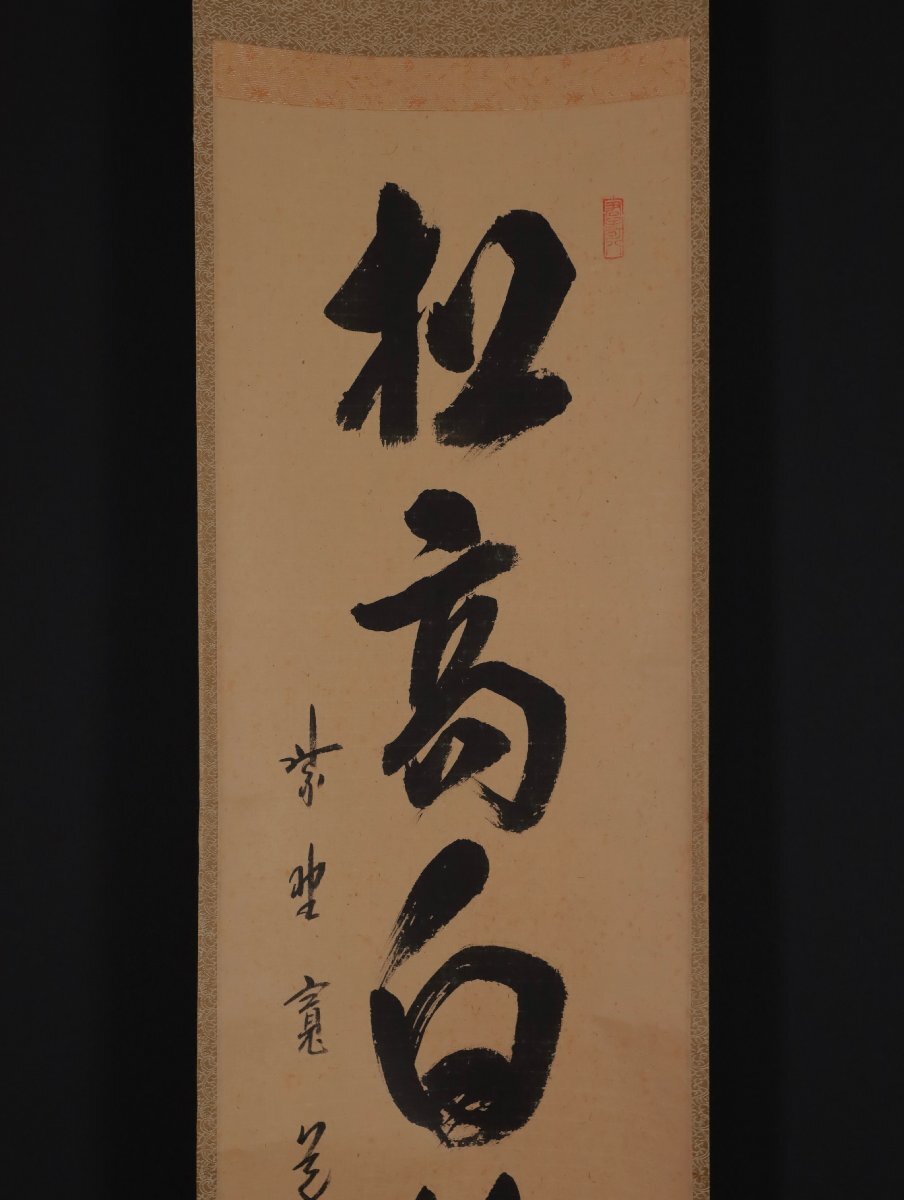 松高白
紫野寛